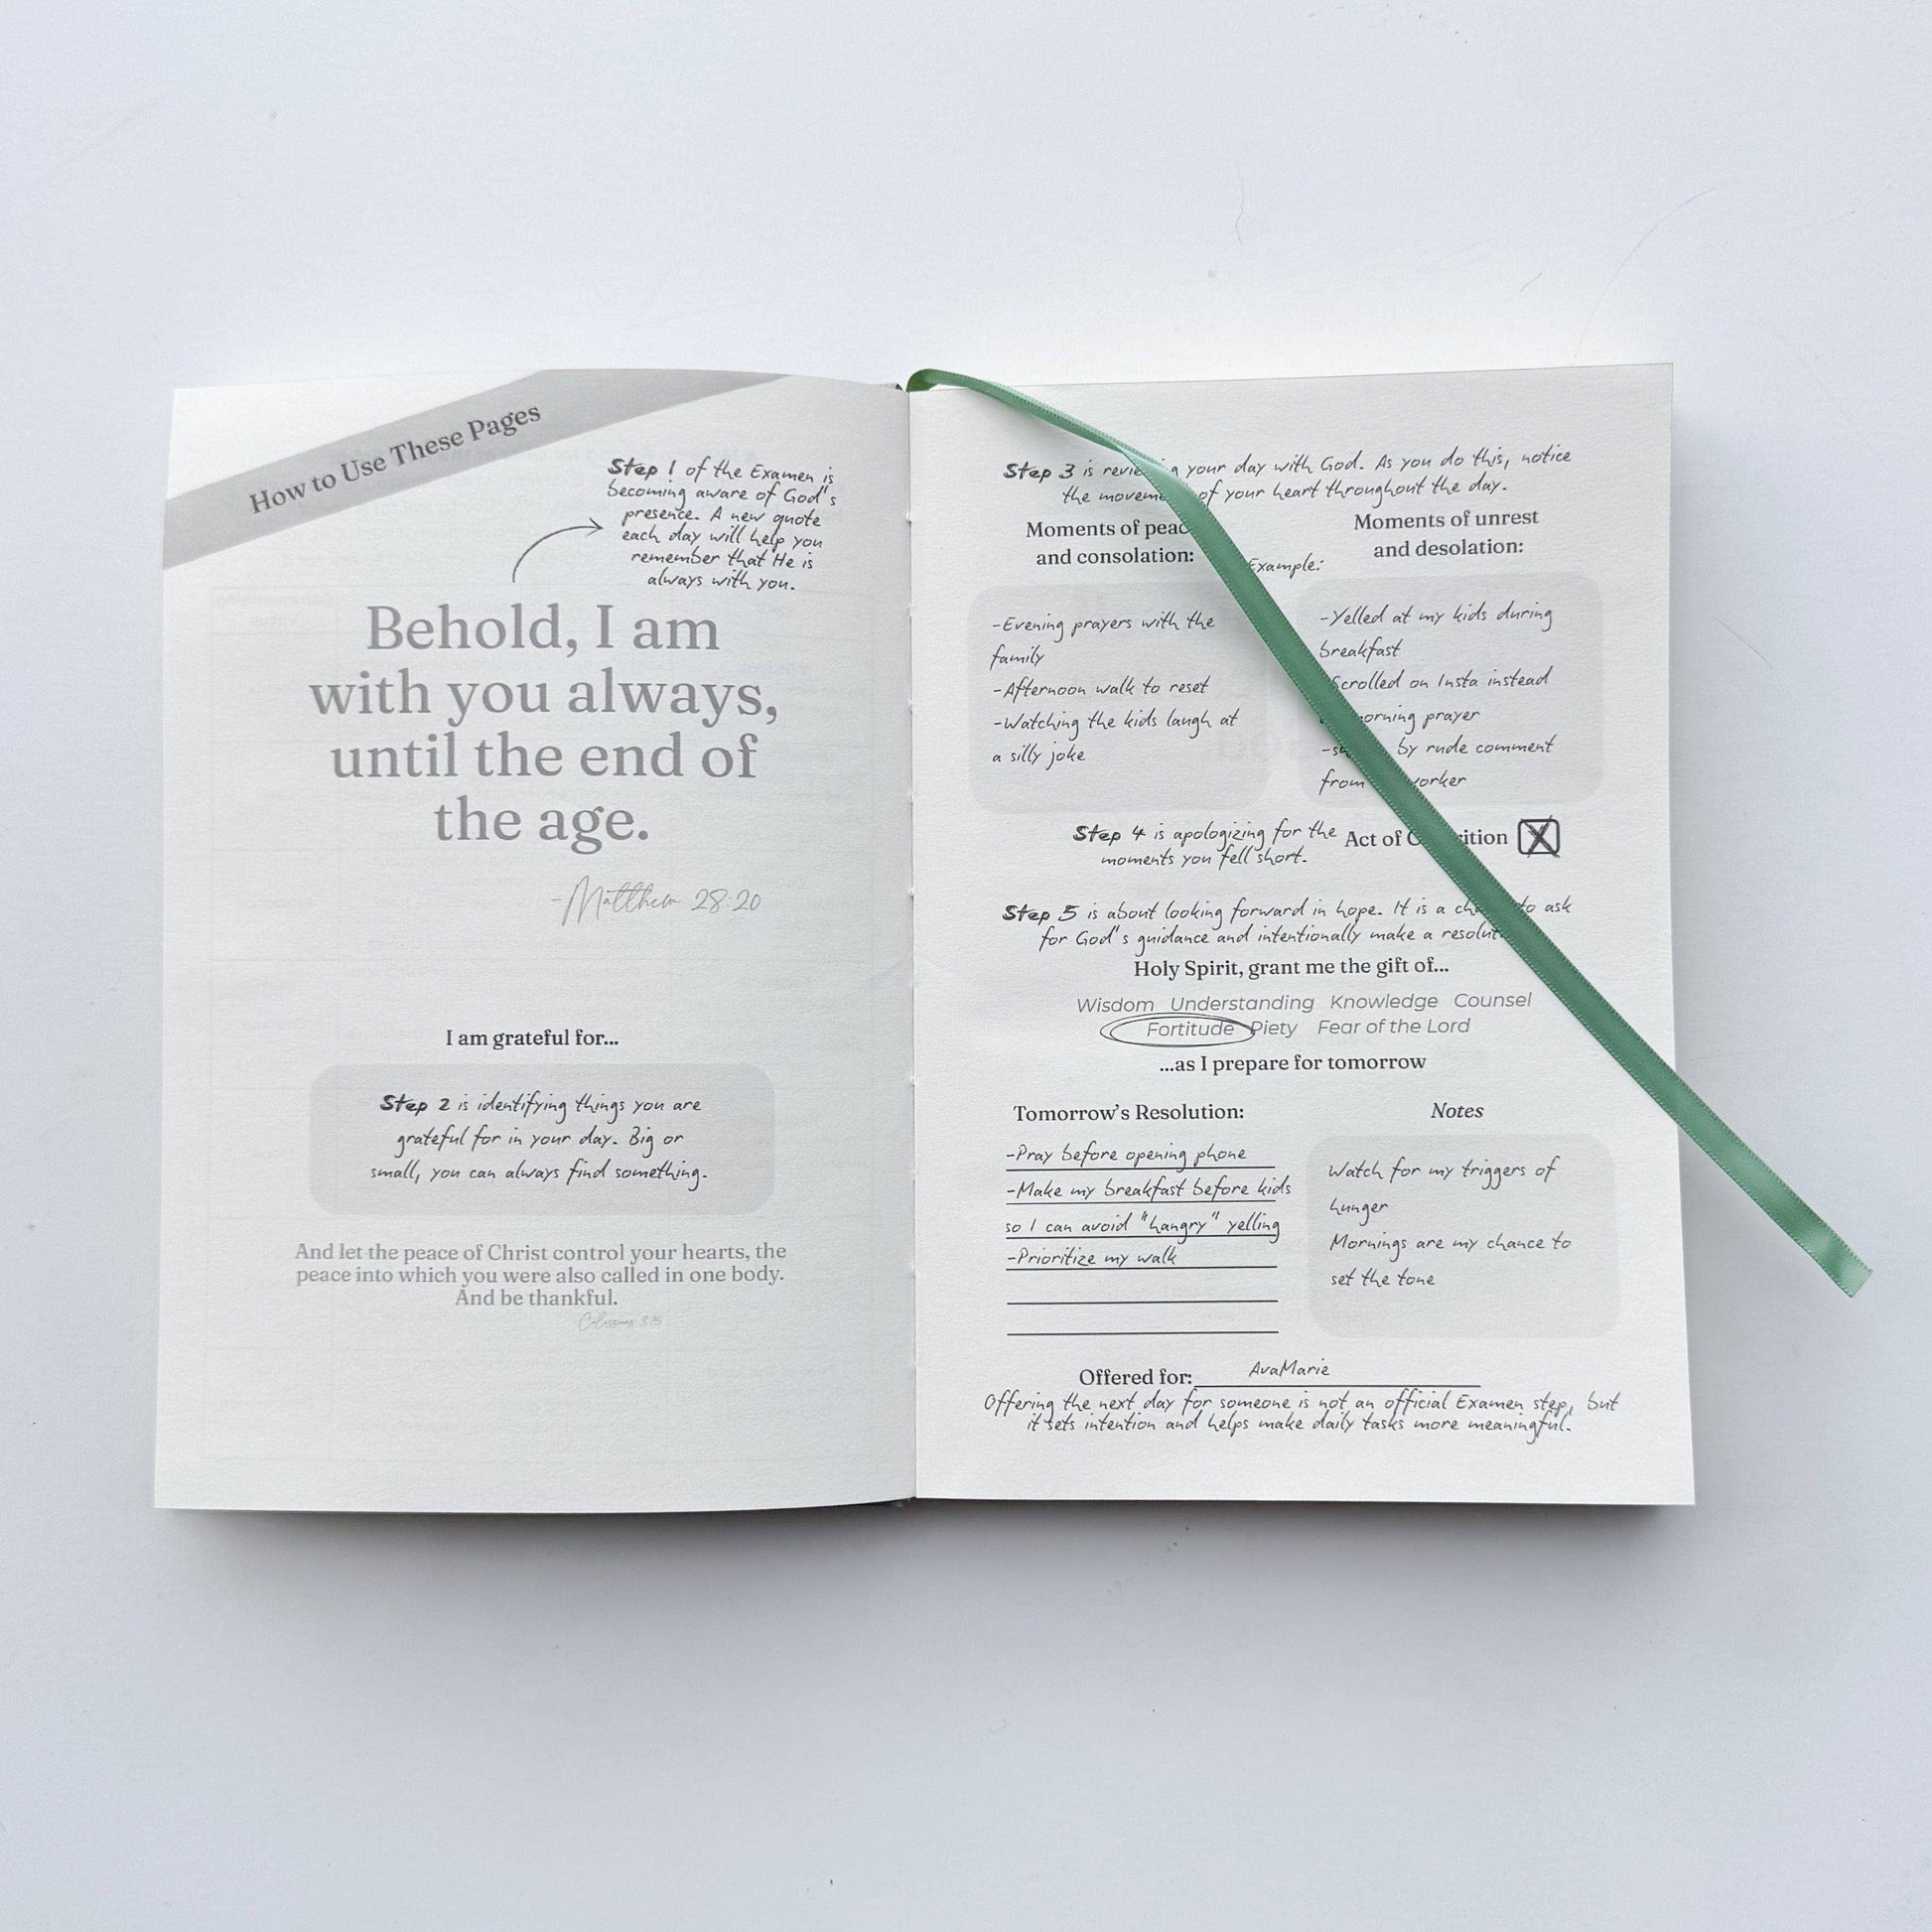 How to Use These Pages
Step 1 of the Examen is
becoming aware of God's
presence. A new quote
each day will help you
remember that He is
always with you.
Behold, I am
with you always,
until the end of
the age.
-Matthew 28:20
I am grateful for...
Step 2 is identifying things you are
grateful for in your day. Big or
small, you can always find something.
And let the peace of Christ control your hearts, the
peace into which you were also called in one body.
And be thankful.
Colossians 3:15
Step 3 is your day with God. As you do this, notice
the of your heart throughout the day.
Moments of
and consolation:
Example:
Moments of unrest
and desolation:
-Evening prayers with the
family
-Afternoon walk to reset
-Watching the kids laugh at
a silly joke
-Yelled at my kids during
breakfast
Scrolled on Insta instead
morning prayer
by rude comment
from
Step 4 is apologizing for the
moments you fell short.
Act of
Step 5 is about looking forward in hope. It is a to ask
for God's guidance and intentionally make a
Holy Spirit, grant me the gift of...
Wisdom Understanding Knowledge Counsel
Fortitude Piety Fear of the Lord
...as I prepare for tomorrow
Tomorrow's Resolution:
-Pray before opening phone
-Make my breakfast before kids
so I can avoid "hangry" yelling
-Prioritize my walk
Notes
Watch for my triggers of
hunger
Mornings are my chance to
set the tone
Offered for: AvaMarie
Offering the next day for someone is not an official Examen step, but
it sets intention and helps make daily tasks more meaningful.